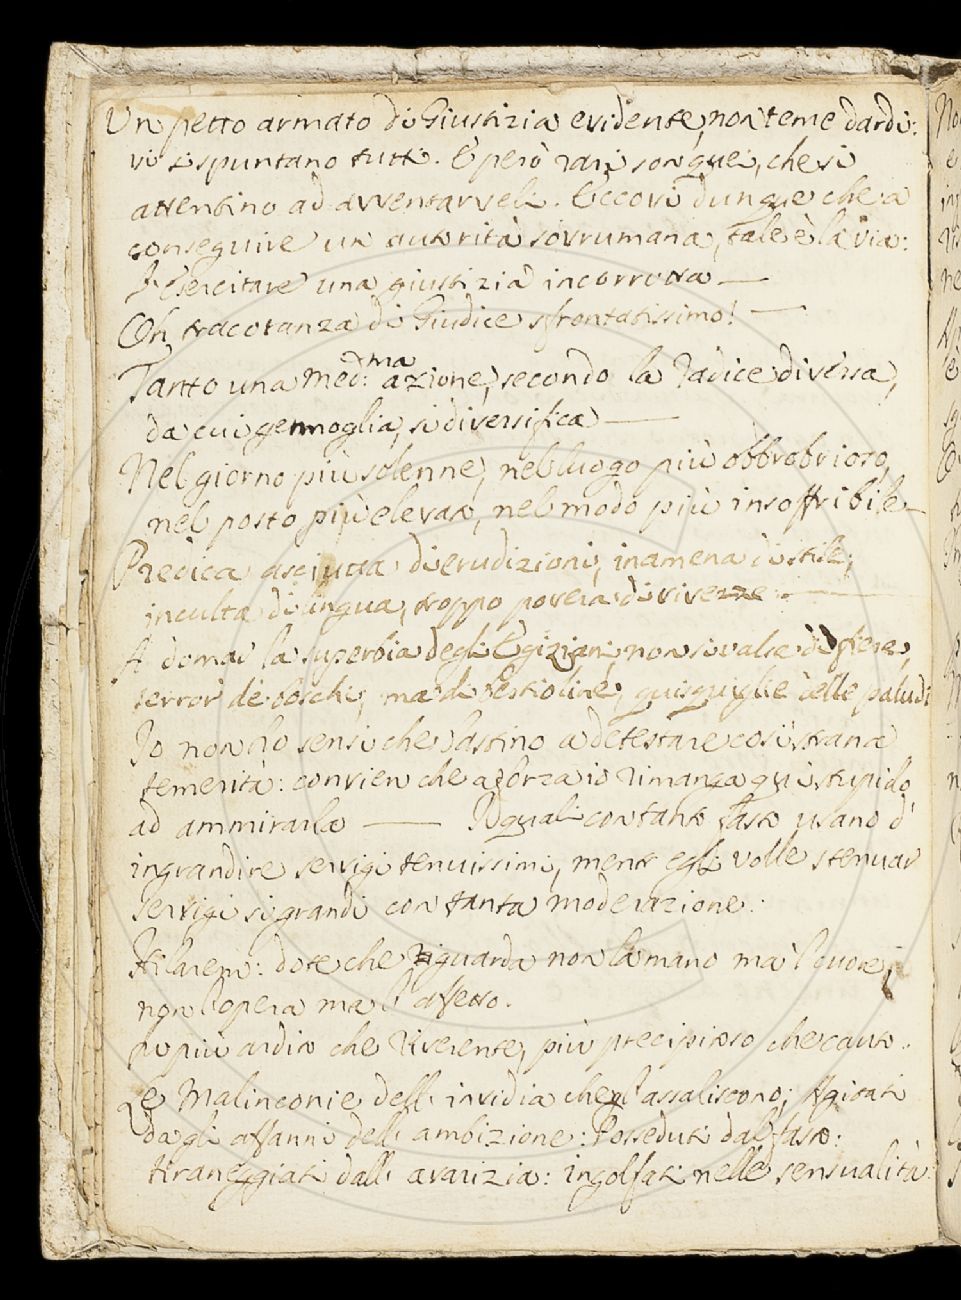 Un petto armato di Giustizia evidente, non teme dardi:
vi si spuntano tutti. E però rari son quei, che si
attentino ad avventarveli. Eccovi dunque che a
conseguire un autorità sovrumana, tale è la via:
Esercitare una giustizia incorrotta —
Oh tracotanza di Giudice sfrontatissimo! —
Tanto una med:ma azione, secondo la radice diversa,
da cui germoglia, si diversifica —
Nel giorno più solenne, nel luogo più obbrobrioso,
nel posto più elevato, nel modo più insoffribile —
Predica asciutta di erudizioni, inamena di stile,
inculta di lingua, troppo povera di vivezze. —
A domar la superbia degli Egiziani, non si valse di fiere,
terror de' boschi, ma di bestioline, quisquiglie delle paludi
Io non ho sensi che bastino a detestare così strana
temerità: convien che a forza io rimanga quì stupido
ad ammirarla — I quali con tanto fasto usano d'
ingrandire servigi tenuissimi, mentr egli volle stenuar
servigi sì grandi con tanta moderazione.
Hilarem: dote che riguarda non la mano ma 'l cuore,
non l'opera ma l' affetto.
Fu più ardito che riverente, più precipitoso che cauto.
Le Malinconie dell' invidia che l'assaliscono; Agitati
dagli affanni dell' ambizione: Posseduti dal fasto:
tiraneggiati dall' avarizia: ingolfati nelle sensualità: